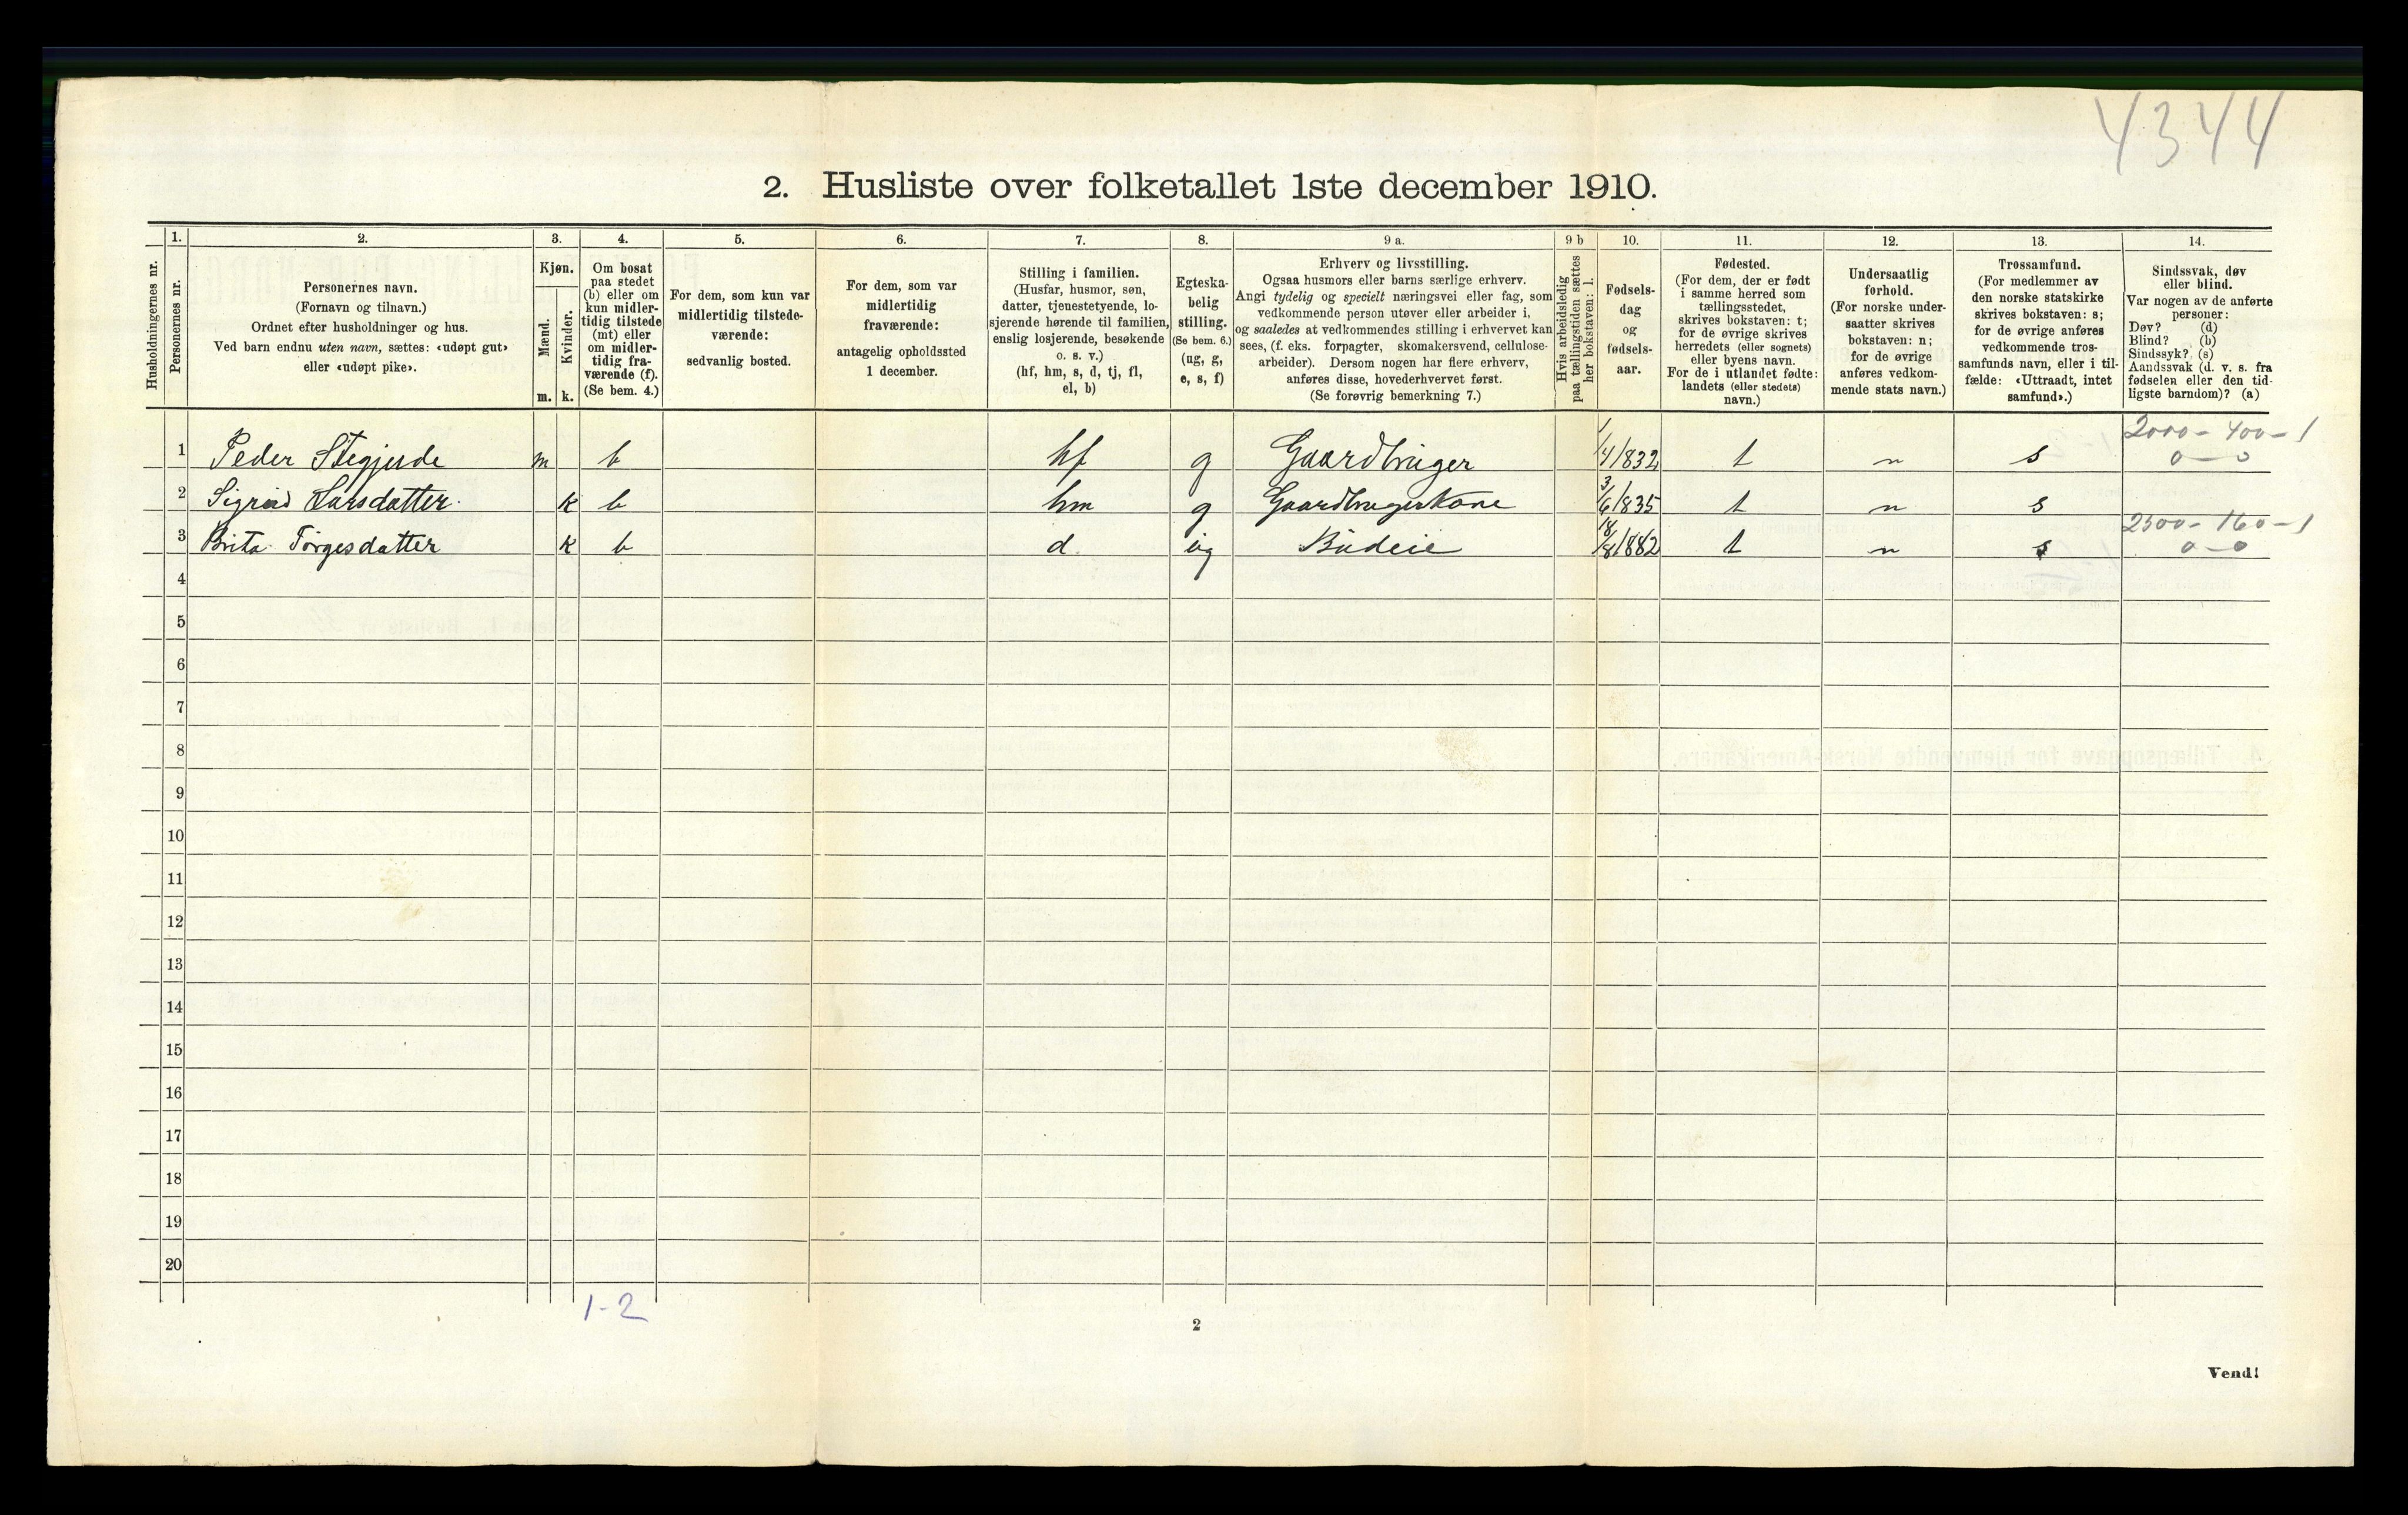 4344
2. Husliste over folketallet 1ste december 1910.
Husholdningernes nr.
1.
Personernes nr.
2.
Personernes navn.
(Fornavn og tilnavn.)
Ordnet efter husholdninger og hus.
Ved barn endnu uten navn, sættes: «udøpt gut»
eller «udøpt pike».
3.
Kjøn.
Mænd.
Kvinder.
m. k.
4.
Om bosat
paa stedet
(b) eller om
kun midler-
tidig tilstede
(mt) eller
om midler-
tidig fra-
værende (f).
(Se bem. 4.)
5.
For dem, som kun var
midlertidig tilstede-
værende:
sedvanlig bosted.
6.
For dem, som var
midlertidig
fraværende:
antagelig opholdssted
1 december.
7.
Stilling i familien.
(Husfar, husmor, søn,
datter, tjenestetyende, lo-
sjerende hørende til familien,
enslig losjerende, besøkende
o. s. v.)
(hf, hm, s, d, tj, fl,
el, b)
8.
Egteska-
belig
stilling.
(Se bem. 6.)
(ug, g,
e, s, f)
9 a.
Erhverv og livsstilling.
Ogsaa husmors eller barns særlige erhverv.
Angi tydelig og specielt næringsvei eller fag, som
vedkommende person utøver eller arbeider i,
og saaledes at vedkommendes stilling i erhvervet kan
sees, (f. eks. forpagter, skomakersvend, cellulose-
arbeider). Dersom nogen har flere erhverv,
anføres disse, hovederhvervet først.
(Se forøvrig bemerkning 7.)
9 b
Hvis arbeidsledig
paa tællingstiden sættes
her bokstaven: l.
10.
Fødsels-
dag
og
fødsels-
aar.
11.
Fødested.
(For dem, der er født
i samme herred som
tællingsstedet,
skrives bokstaven: t;
for de øvrige skrives
herredets (eller sognets)
eller byens navn.
For de i utlandet fødte:
landets (eller stedets)
navn.)
12.
Undersaatlig
forhold.
(For norske under-
saatter skrives
bokstaven: n;
for de øvrige
anføres vedkom-
mende stats navn.)
13.
Trossamfund.
(For medlemmer av
den norske statskirke
skrives bokstaven: s;
for de øvrige anføres
vedkommende tros-
samfunds navn, eller i til-
fælde: «Uttraadt, intet
samfund».)
14.
Sindssvak, døv
eller blind.
Var nogen av de anførte
personer:
Døv? (d)
Blind? (b)
Sindssyk? (s)
Aandssvak (d. v. s. fra
fødselen eller den tid-
ligste barndom)? (a)
2000 - 400 - 1
1 Peder Stegjerde m b hf g Gaardbruger 1/4 1832 t n s 0 - 0
2 Sigrid Larsdatter k b hm g Gaardbrugerkone 3/6 1835 t n s
2300 - 160 - 1
3 Brita Törgesdatter k b d ug Budeie 18/8 1882 t n s 0 - 0
4
5
6
7
8
9
10
11
12
13
14
15
16
17
18
19
20
1-2
2
Vend!